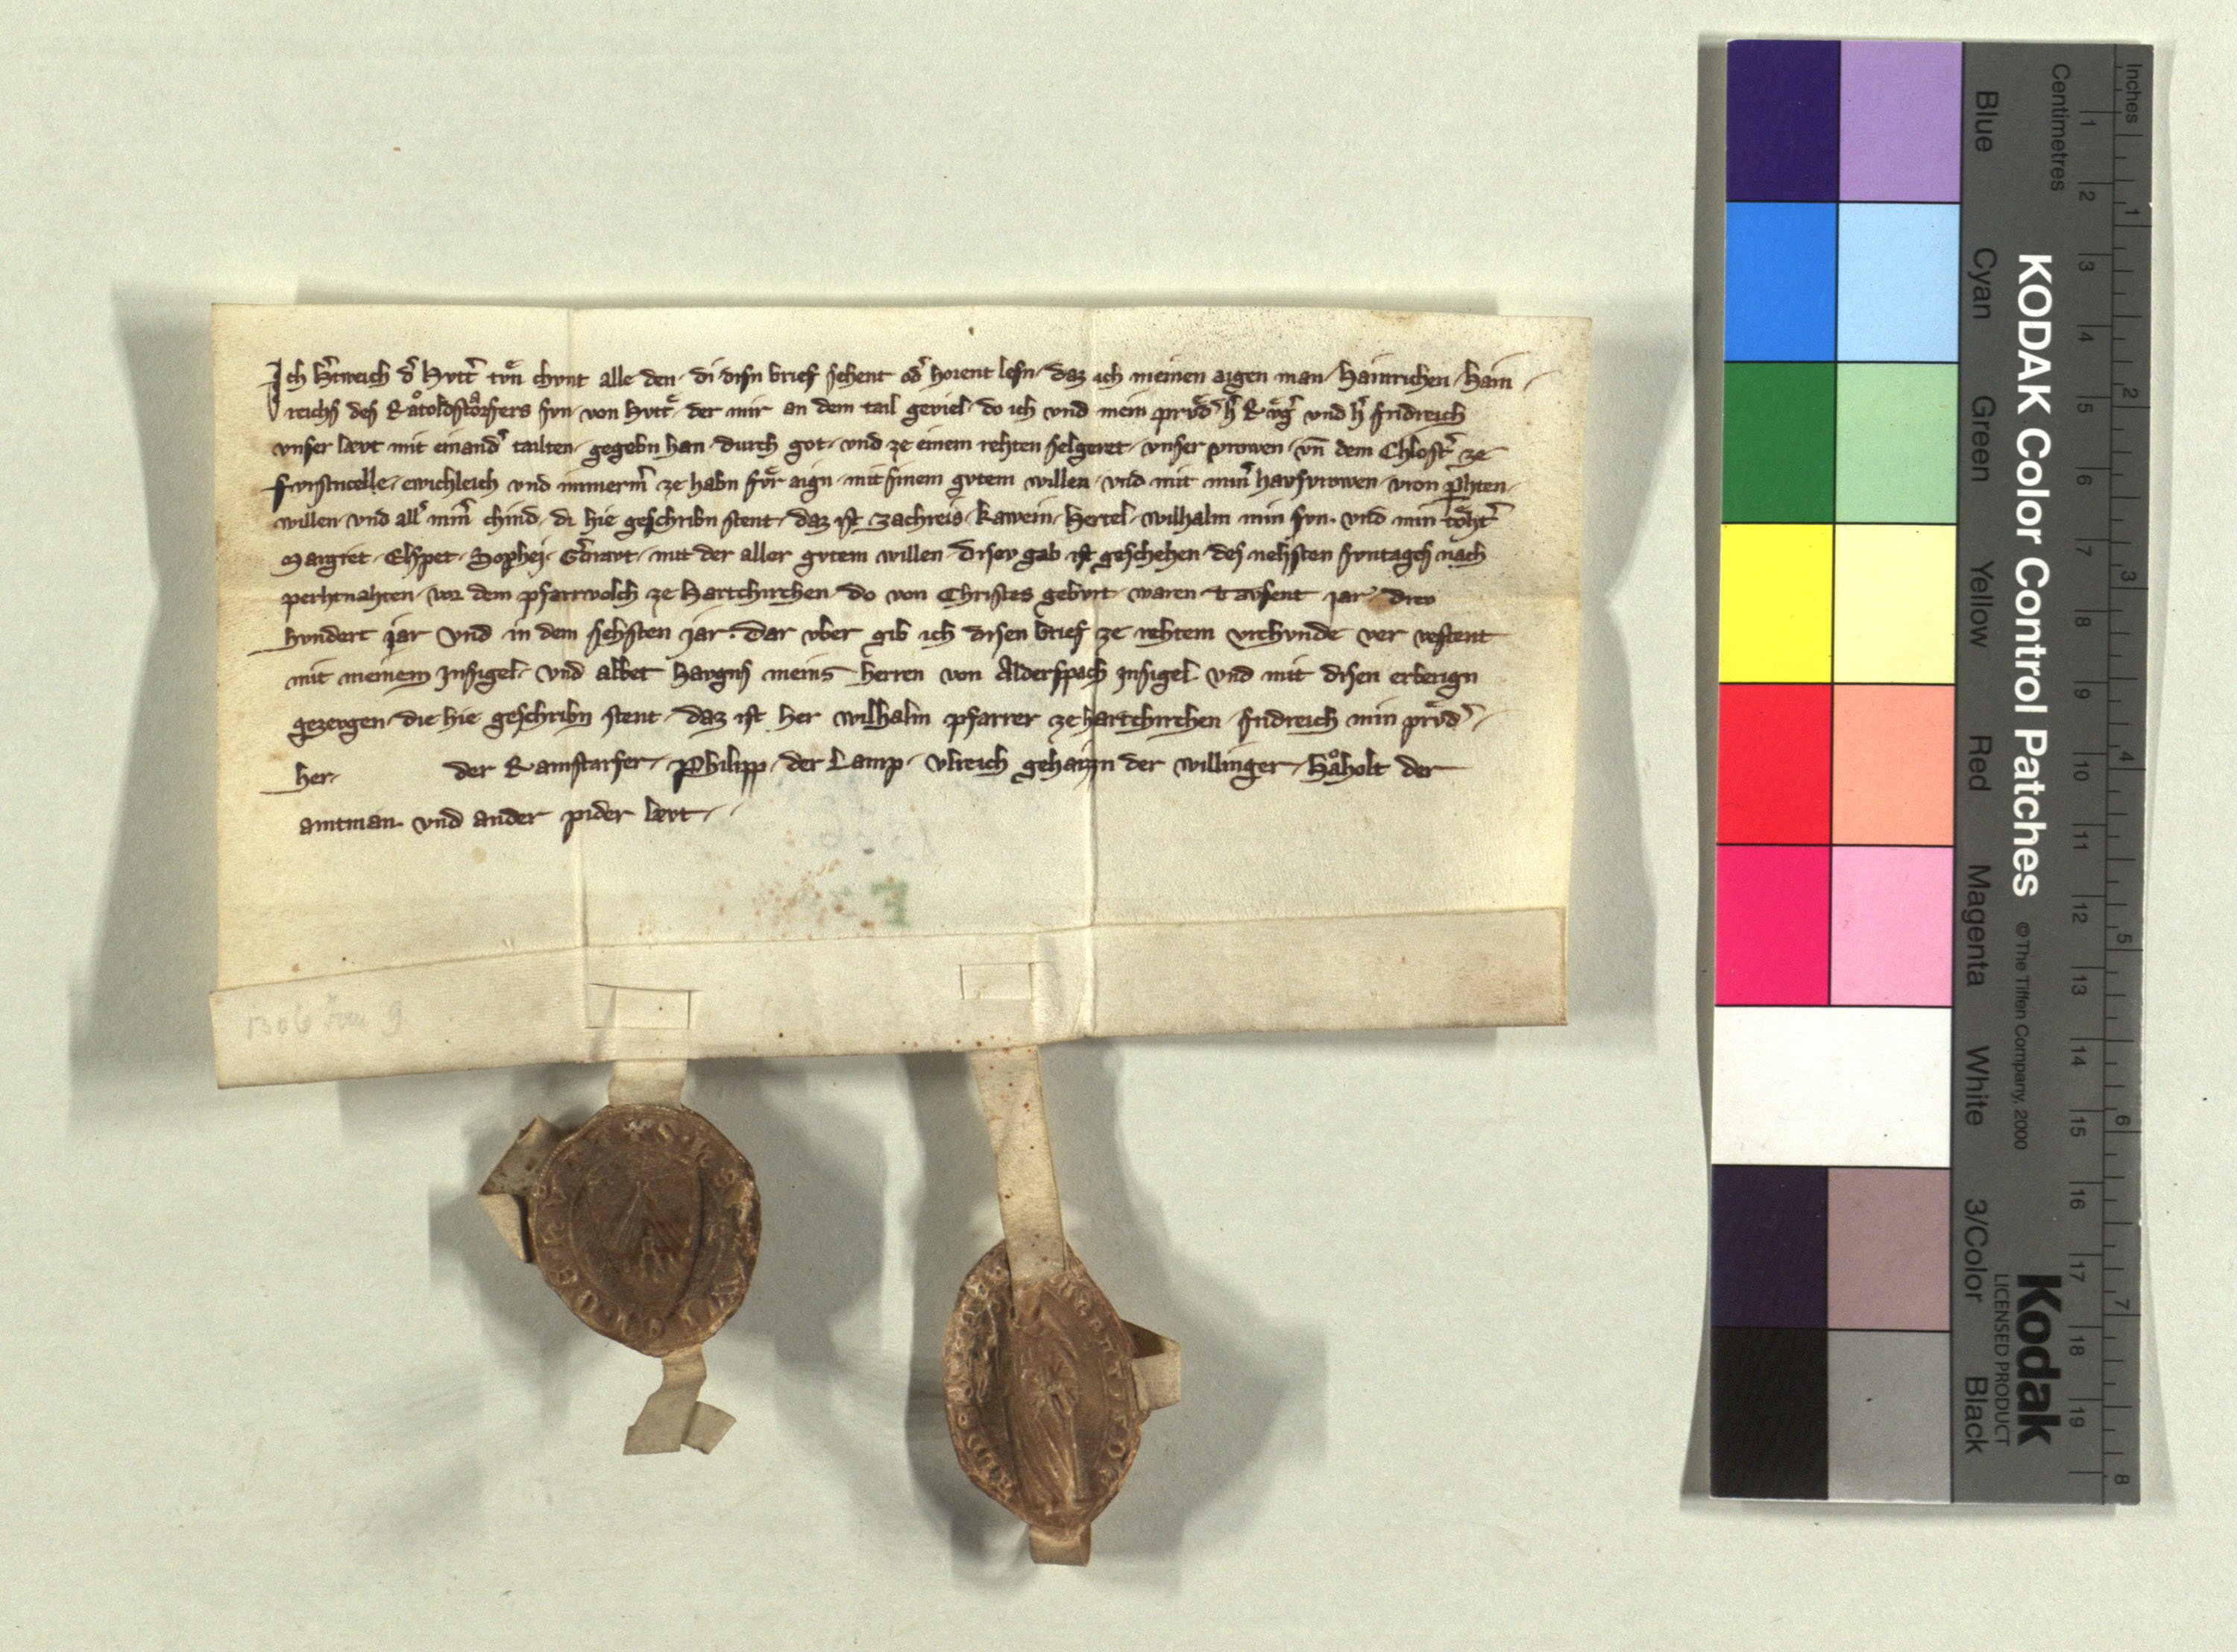 Ich h̄rtweich d̄ Hvtt̄ tvͤn chvnt alle den · di disn brief sehent od̄ horent lesn · daz ich meinen aigen man · Hainrichen · Hain
reichs des Raͦtoldstorfers svn · von Hvttͤ · der mir an dem tail geviel · do ich vnd mein prvͤd̄ h̄ Rvͤḡ vnd h̄ fridreich
vnser lævt mit einand̄ tailten · gegebn han · durch got · vnd ze einem rehten selgeret · vnser vrowen · vn̄ dem Chlost̄ ze
fvrstncelle · ewichleich vnd immerm̄ ze habn fvͤr aign · mit sinem gvtem willen · vnd mit min̄ havsvrowen · vron p̄hten ·
willen · vnd all̄ min̄ chind · di hie geschribn stent · daz ist zachreis · kawein · Hertel · wilhalm min svn · vnd min toͤht̄
Margret · Elspet · Sophei · Ḡtravt · mit der aller gvtem willen · disev gab ist geschehen · des nehsten svntages nach
perhtnahten · vor dem pfarrvolch ze Hartchirchen · do von Christes gebvrt · waren tavsent jar · drev
hvndert jar vnd in dem sehsten jar · Dar vber gib ich disen brief ze rehtem vrchvnde ver vestent
mit meinem Insigel · vnd abbet Havgns meins herren von Alderspach Insigel · vnd mit disen erberign
gezevgen · die hie geschribn stent · daz ist her wilhalm pfarrer ze hartchirchen · fridreich min prvͤd̄ ·
her · der Ramstarfer · Philipp · der Lamp · vlreich gehaizn der willinger · Haͦholt der
amtman · vnd ander pider lævt ·
F
1306 Jan 9
KODAK Color Control Patches
© The Tiffen Company, 2000
Kodak
LICENSED PRODUCT
Blue Cyan Green Yellow Red Magenta White 3/Color Black
Centimetres 1 2 3 4 5 6 7 8 9 10 11 12 13 14 15 16 17 18 19
Inches 1 2 3 4 5 6 7 8